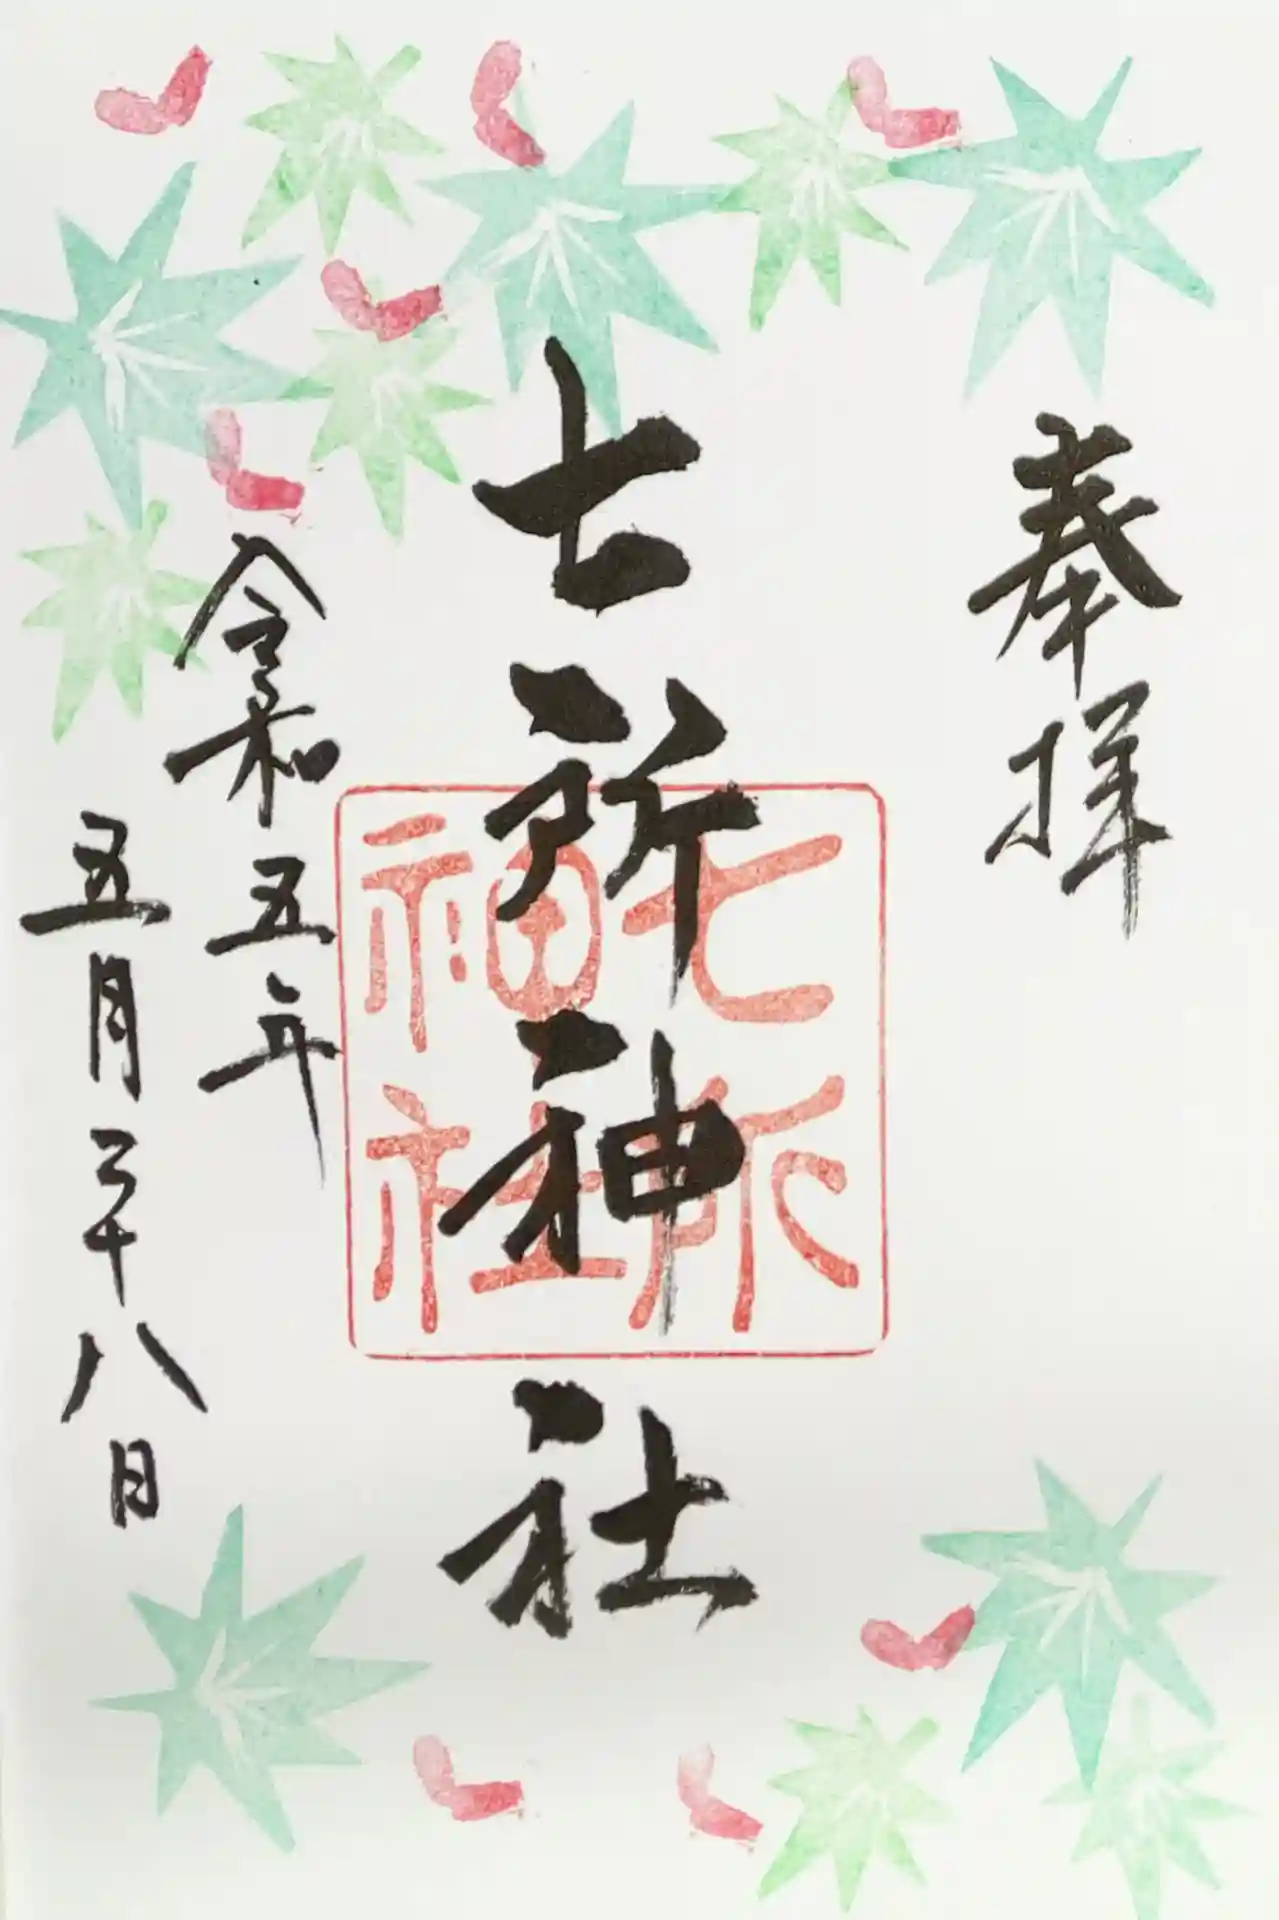 奉拝
七所神社
七所
神社
令和五年
五月二十八日